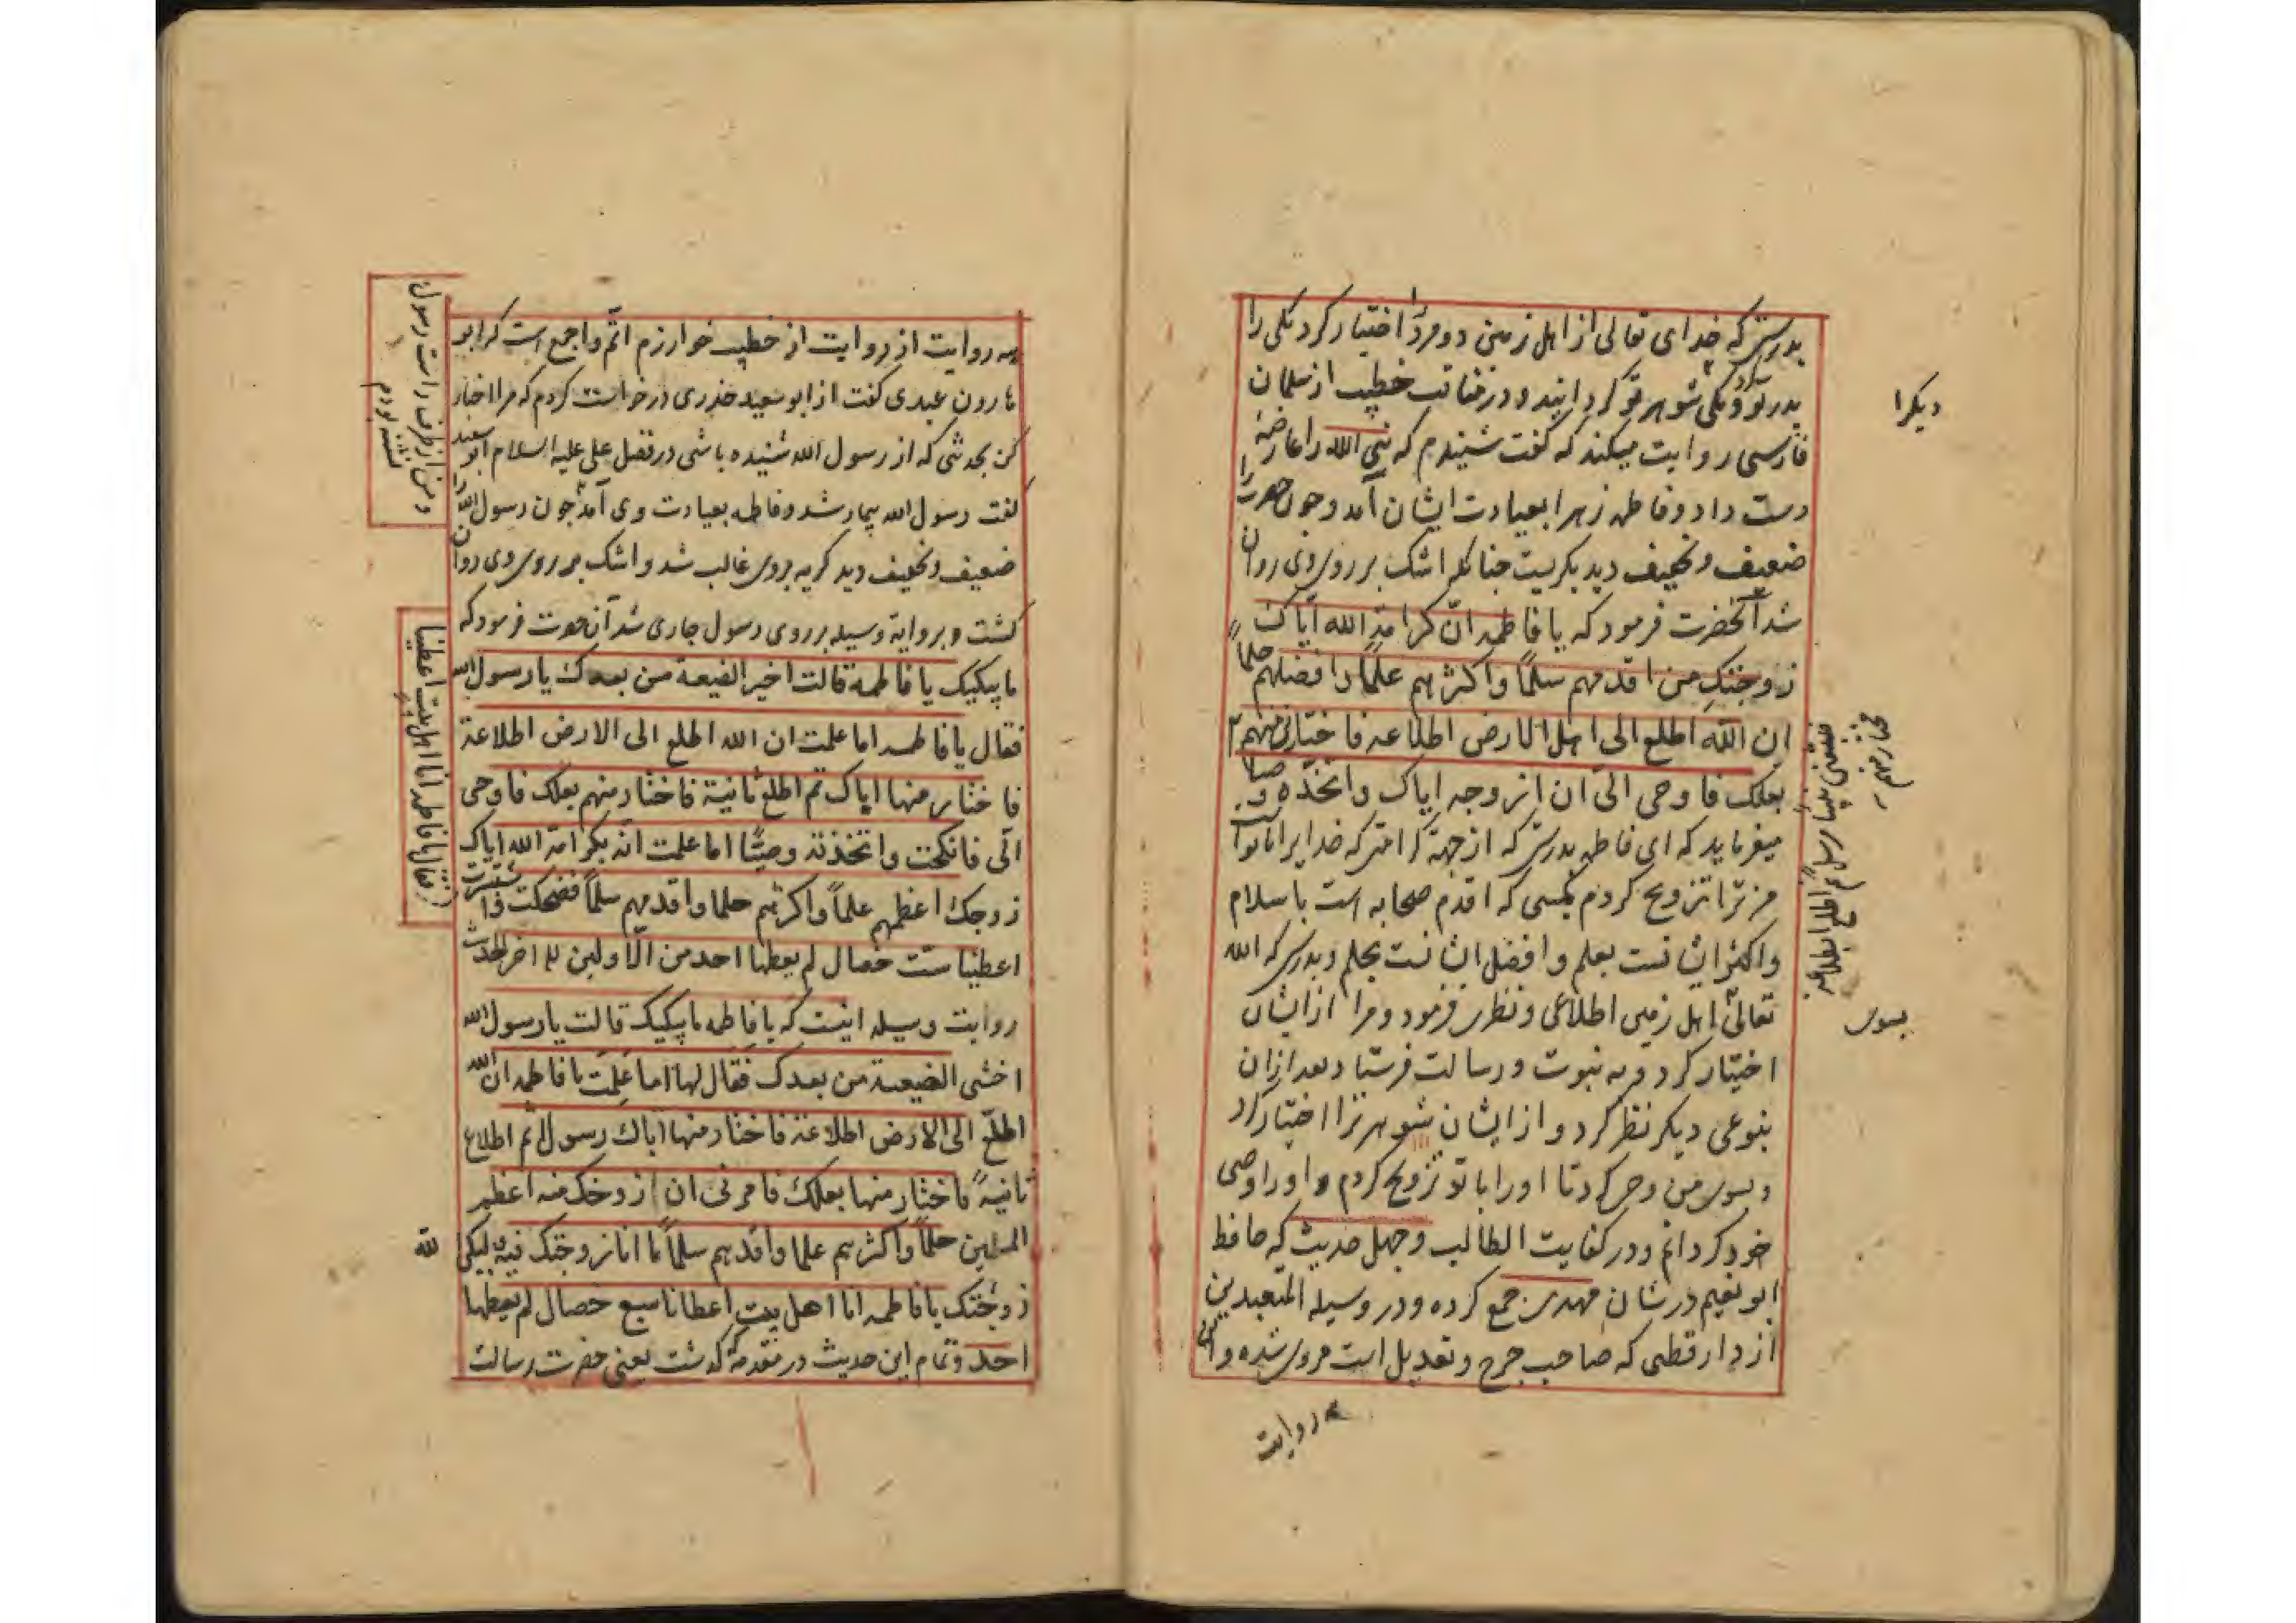 بدرستی که خدای تعالی از اهل زمین دو مرد را اختیار کرد یکی را
پدر تو و یکی شوهر تو گردانید و در مناقب خطیب از سلمان
فارسی روایت میکند که گفت شنیدم که نبی الله را عارضهٔ
دست داد و فاطمه زهرا بعیادت ایشان آمد و چون حضرت را
ضعیف و نحیف دید بگریست چنانکه اشک بر روی وی روان
شد آنحضرت فرمود که یا فاطمه ان کرامة الله ایاک
زوجتک من اقدمهم سلمًا واکثرهم علمًا وافضلهم حلمًا
ان الله اطلع الی اهل الارض اطلاعة فاختارنی منهم
بعلک فاوحی الیّ ان ازوجه ایاک واتخذه وصیا
میفرماید که ای فاطمه بدرستی که از جهة کرامتی که خدایرا با تو است
من ترا تزویج کردم بکسی که اقدم صحابه است باسلام
واکثر ایشانست بعلم وافضل ایشانست بحلم وبدرستی که الله
تعالی اهل زمین اطلاعی ونظری فرمود ومرا از ایشان
اختیار کرد وبه نبوت ورسالت فرستاد وبعد ازان
بنوعی دیگر نظر کرد واز ایشان شوهر ترا اختیار کرد
وبسوی من وحی کرد تا اورا با تو تزویج کردم و اورا وصی
خود کردانم ودر کفایت الطالب وچهل حدیث که حافظ
ابو نعیم در شان مهدی جمع کرده ودر وسیلة المتعبدین
از دارقطنی که صاحب جرح وتعدیل است مروی شده و
دیکرا
بسوی
روایت
روایت از روایت از خطیب خوارزم اتم واجمع است که ابو
هارون عبدی گفت از ابو سعید خدری درخواست کردم که مرا اخبار
کن بحدیثی که از رسول الله شنیده باشی در فضل علی علیه السلام ابو سعید
گفت رسول الله بیمار شد وفاطمه بعیادت وی آمد چون رسول الله را
ضعیف ونحیف دید گریه بروی غالب شد واشک بر روی وی روان
گشت وبروایة وسیله بر روی رسول جاری شد آن حضرت فرمود که
مایبکیک یا فاطمة قالت اخیر الضیعة من بعدک یا رسول الله
فقال یا فاطمه اما علمت ان الله اطلع الی الارض اطلاعة
فاختار منها ایاک ثم اطلع ثانیة فاختار منهم بعلک فاوحی
الّی فانکحت واتخذته وصیًّا اما علمت انّه بکرامة الله ایاک
زوجک اعظمهم علمًا واکرثهم حلما واقدمهم سلمًا فضحکت واستبشرت
اعطینا ست خصال لم یعطها احد من الاولین الی اخر الحدیث
روایت وسیله اینست که یا فاطمه مایبکیک قالت یا رسول الله
اخشی الضیعة من بعدک فقال لها اما علمت یا فاطمه ان الله
اطلّع الی الارض اطلاعة فاختار منها اباک رسولا ثم اطلاع
ثانیةً فاختار منها بعلک فامرنی ان ازوجک منه اعظم
المسلمین حلمًا واکثرهم علما واقدمهم سلمًا ما انا زوجتک
زوجتک یا فاطمه انا اهل بیت اعطانا سبع خصال لم یعطها
احد وتمام این حدیث در مقدمه گذشت یعنی حضرت رسالت
ومن از طرف راست رسول
نشسته بودم
فقال یا فاطمه انا اهل بیت اعطینا
الله